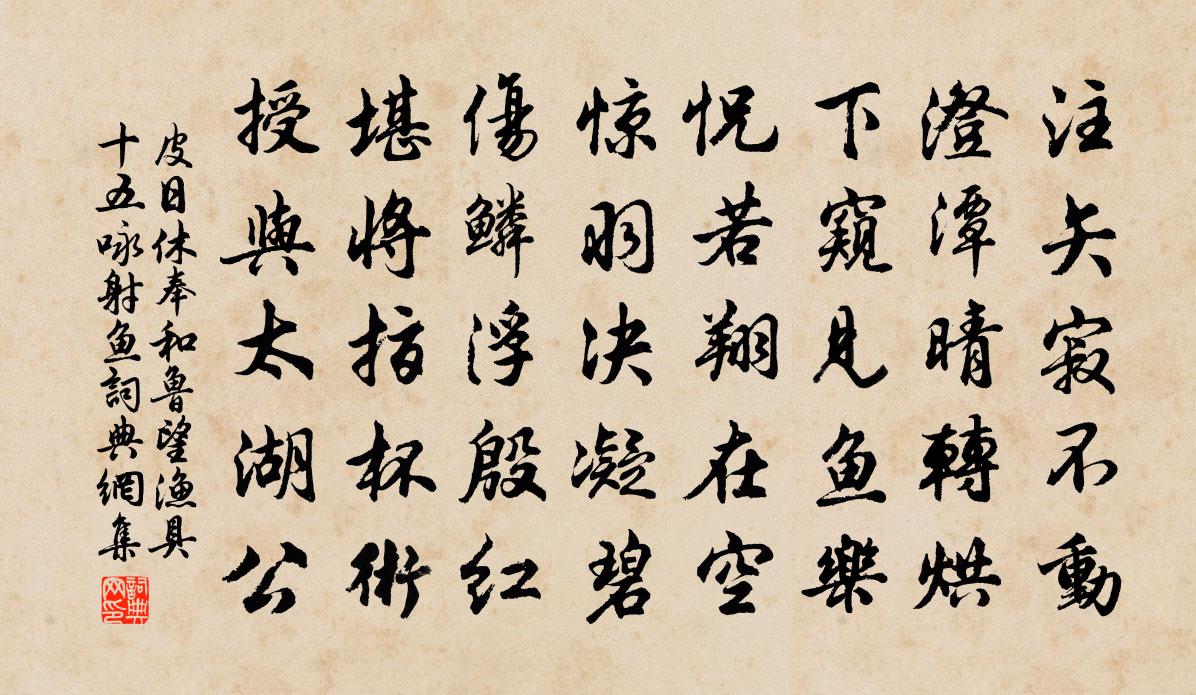 注矢寂不動
澄潭晴轉烘
下窺見鱼樂
怳若翔在空
惊羽决凝碧
傷鱗浮殷红
堪將指杯術
授與太湖公
皮日休奉和魯望漁具
十五咏射鱼詞典網集
詞典
网印